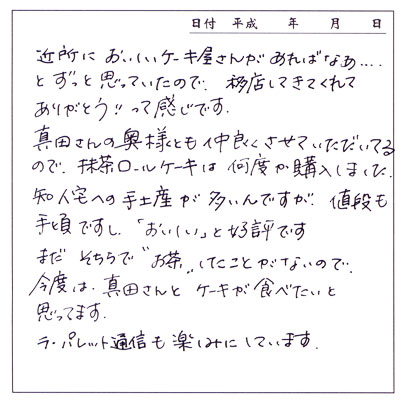 日付 平成 年 月 日
近所に おいしいケーキ屋さんが あれば なあ....
と ずっと 思っていたので、移店してきてくれて
ありがとう!! って感じです.
真田さんの奥様とも 仲良くさせていただいてる
ので、抹茶ロールケーキは 何度か購入しました.
知人宅への手土産が 多いんですが、値段も
手頃ですし、「おいしい」と好評です
まだ そちらで "お茶" したことがないので、
今度は、真田さんと ケーキが食べたいと
思ってます.
ラ・パレット通信も 楽しみにしています.